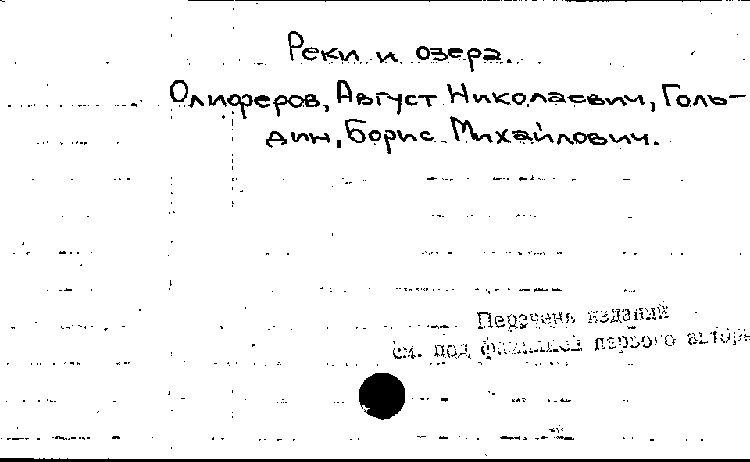 Реки и озера.
Олиферов, Август Николаевич, Голь-
дин, Борис Михайлович.
Перечень изданий
см. под фамилией первого автора